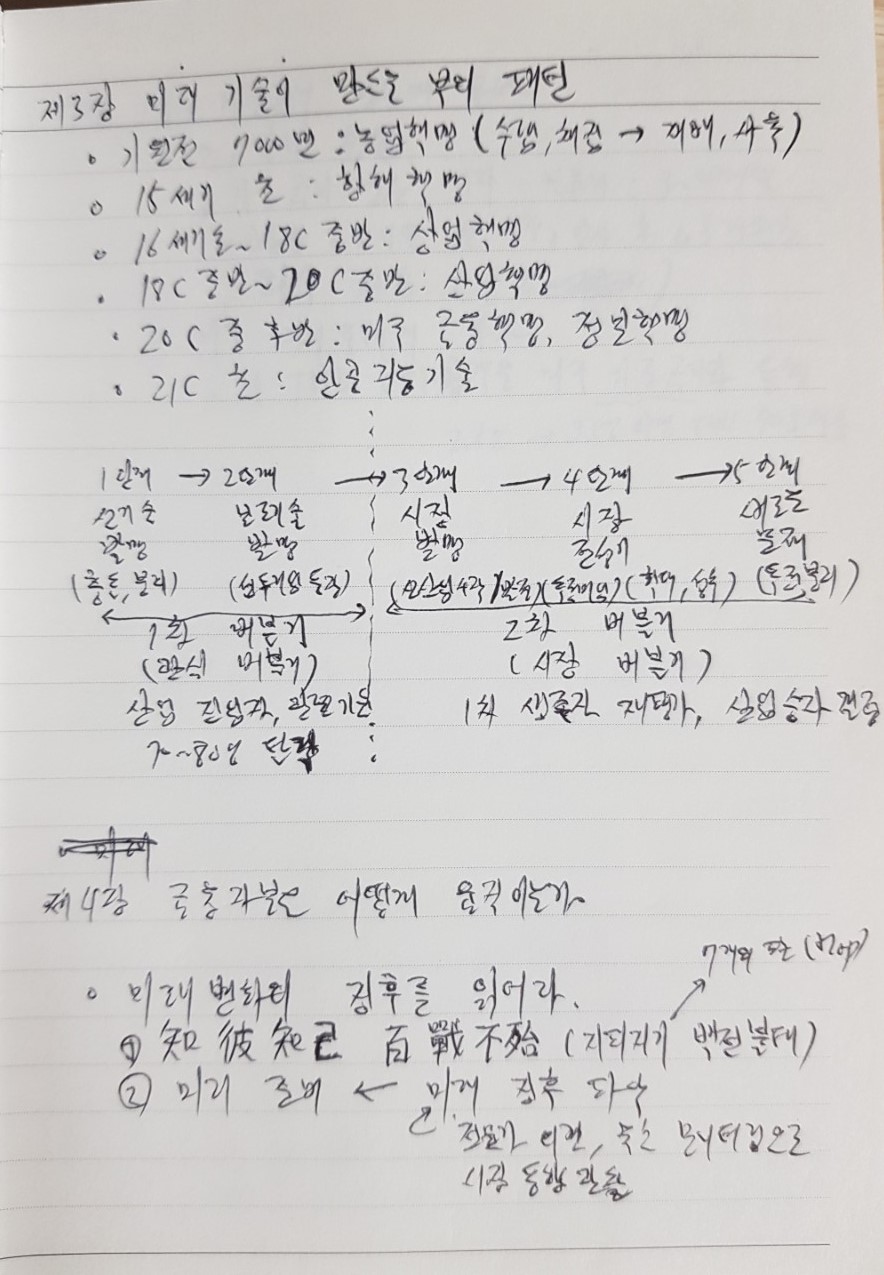 제3장 미래 기술이 만드는 부의 패턴
• 기원전 7000년 : 농업혁명 (수렵, 채집 → 재배, 사육)
○ 15세기 초 : 항해 혁명
○ 16세기초~18C 중반 : 상업혁명
• 18C 중반~20C 중반 : 산업혁명
• 20C 중후반 : 미국 금융혁명, 정보혁명
• 21C 초 : 인공지능기술
1단계 → 2단계 → 3단계 → 4단계 → 5단계
신기술 보조기술 시장 시장 새로운
발명 발명 발명 문제
(충돌, 분리) (확대, 성숙) (분리)
1차 버블기 2차 버블기
(인식 버블기) (시장 버블기)
산업 진입자, 1차 생존자 재평가, 산업승자 결정
7~80%
제4장 금융자본은 어떻게 움직이는가.
7개의
○ 미래변화의 징후를 읽어라.
① 知彼知己 百戰不殆 (지피지기 백전불태)
② 미리 준비 ← 미래 징후 파악
전문가 의견, 모니터링으로
시장 동향 관찰